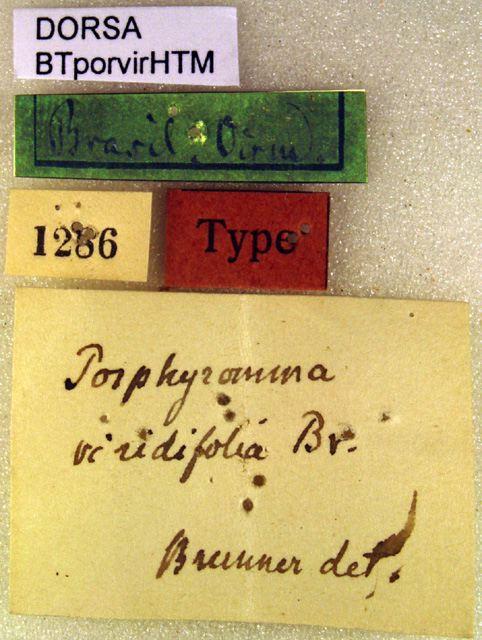 DORSA
BTporvirHTM
Brasil (Virm).
1286
Type
Porphyromma
viridifolia Br.
Brunner det.